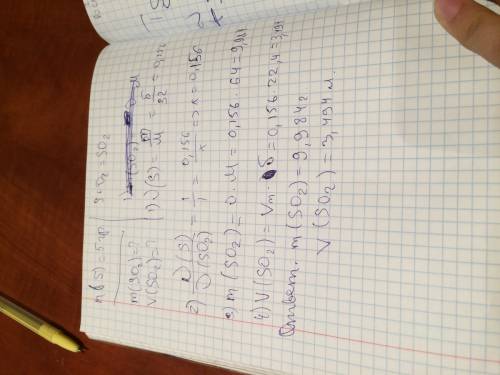 m(S)=5гр
m(SO₂)=?
V(SO₂)=?
S+O₂=SO₂
1) ν(S)=m/M=5/32=0,156
2) ν(S)/ν(SO₂)=1/1=0,156/x=>x=0,156
3) m(SO₂)=ν·M=0,156·64=9,984
4) V(SO₂)=Vm·ν=0,156·22,4=3,494
Ответ: m(SO₂)=9,984г
V(SO₂)=3,494 л.